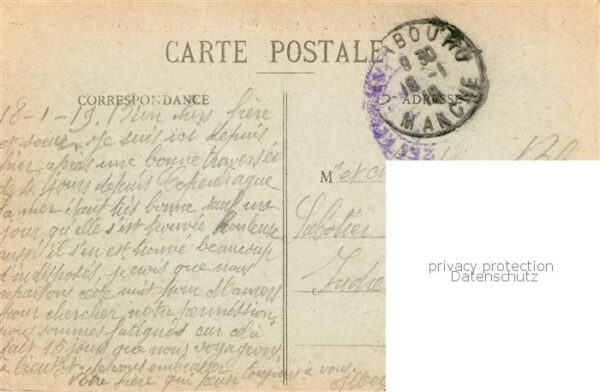 CARTE POSTALE
CORRESPONDANCE
ADRESSE
MANCHE
18-1-19. Bien chers frère
et soeur. Je suis ici depuis
hier, après une bonne traversée
de 4 jours depuis Copenhague
la mer étant très bonne sauf un
jour, qu'elle s'est trouvée houleuse
aussi il s'en est trouvé beaucoup
d'indisposés, je crois que nous
repartons cette nuit pour
pour chercher notre permission
nous sommes fatigués car cela
fait 15 jours que nous voyageons,
à bientôt je vous embrasse
Votre frère qui pense toujours à vous.
M et
Sabotier
Indre
privacy protection
Datenschutz